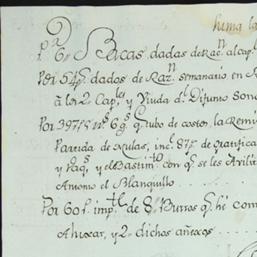 huma la
Pr. 6 Bacas dadas de Racn. al cap
Por 54 ps. dados de Razn. semanario en
a los 2 Capes. y Viuda dl. Difunto
Por 397 ps. 5 rs. 6 gs. q. tubo de costos la Remi
Partida de Mulas, inc. 87 ps. de Gratifica
y Pag. y el Bastimto. con q. se les
Antonio el Blanquillo
Por 60 ps. impte. de 8 Burros q. he com
Ahixar, y 2 dichos añexos